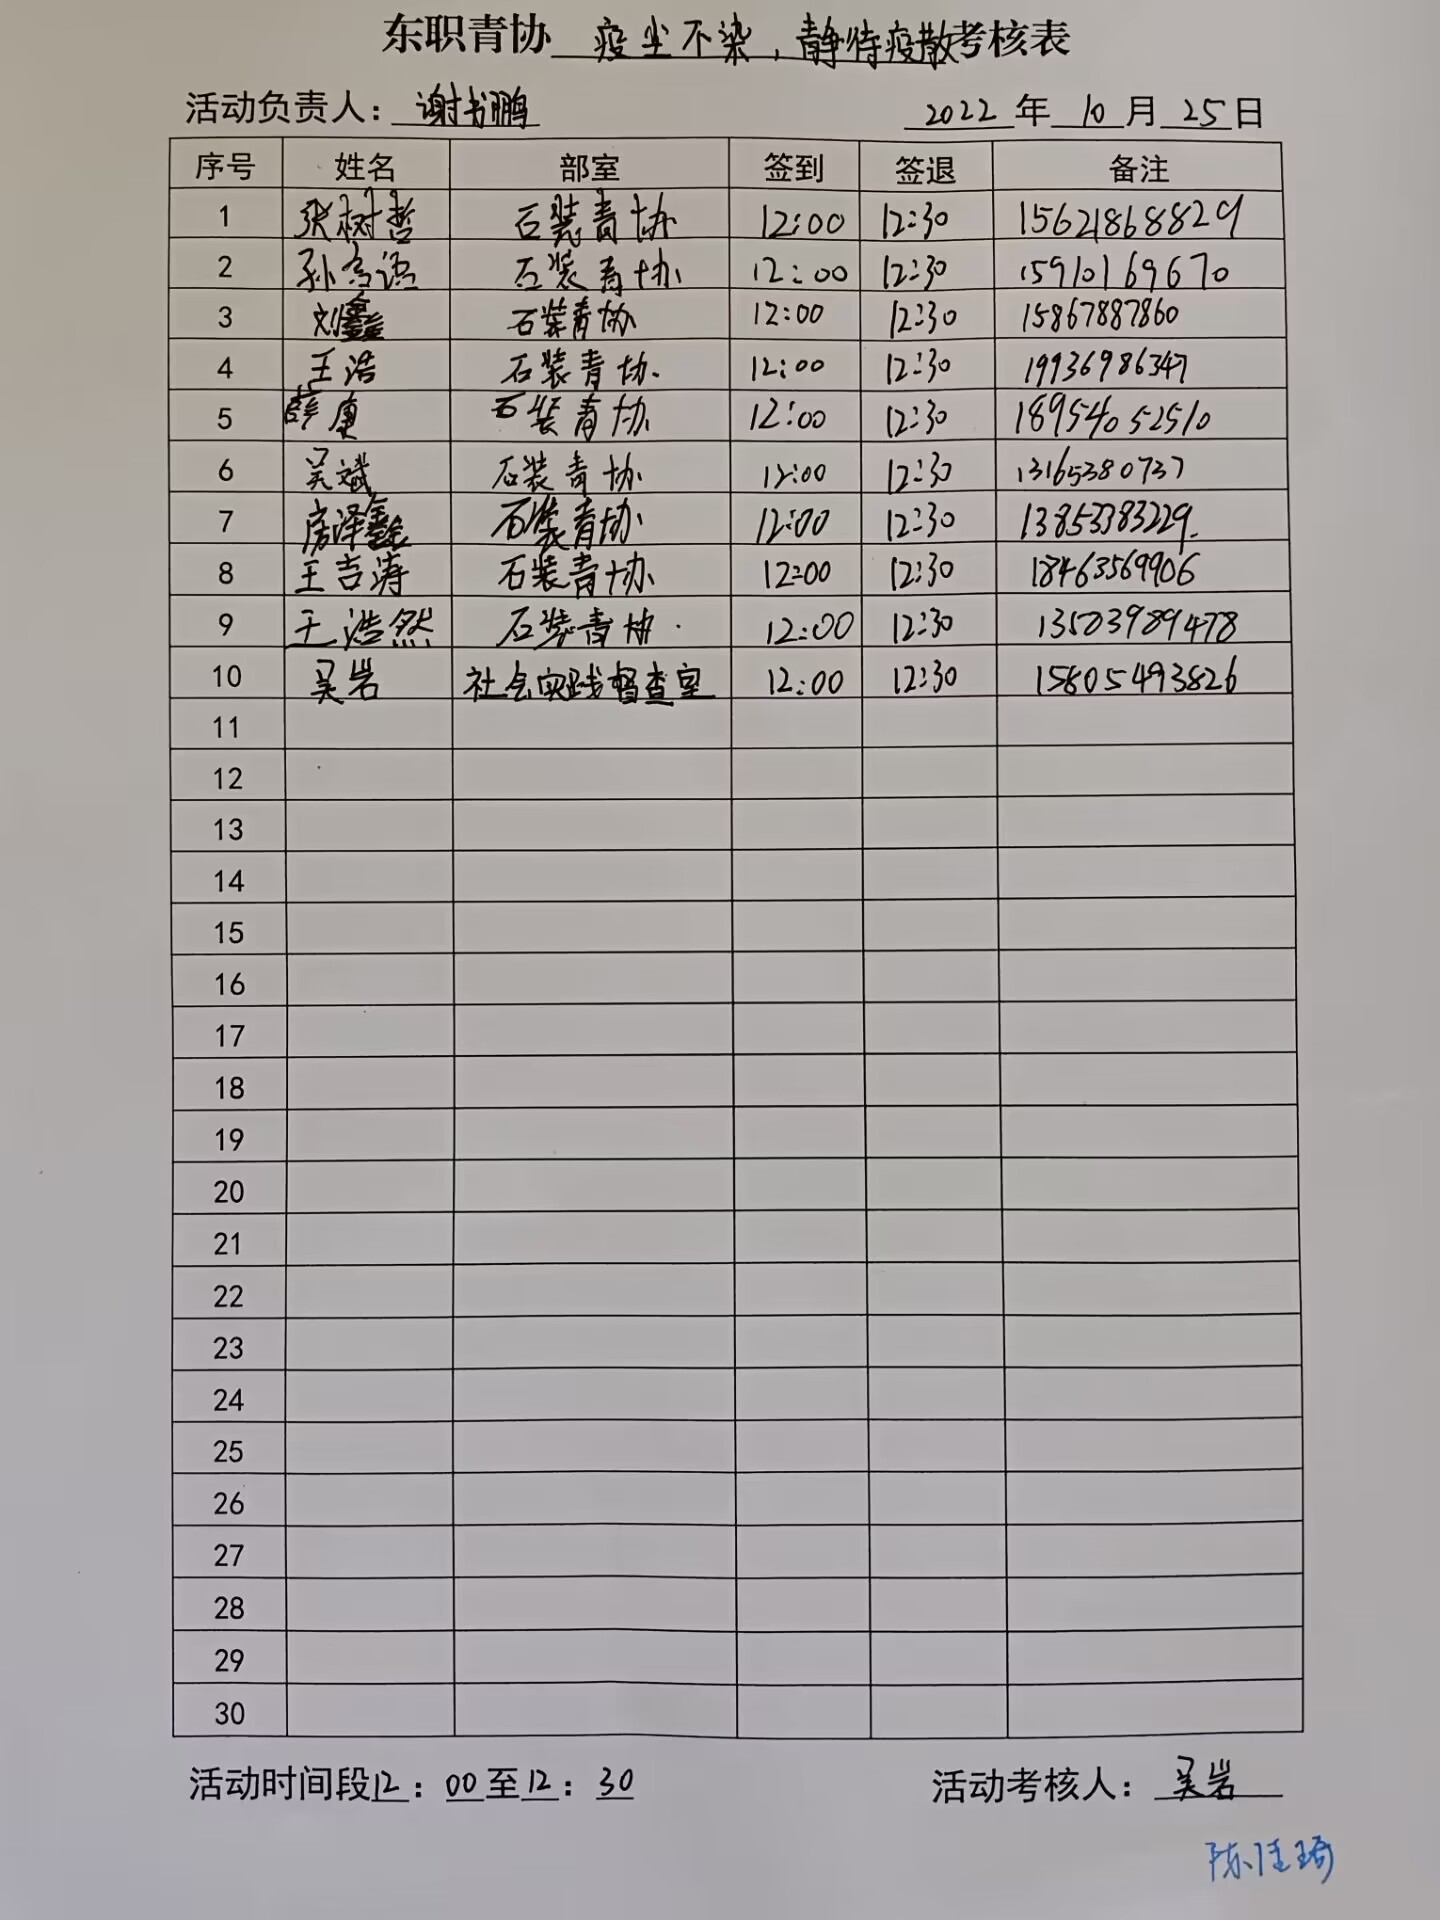 东职青协 疫尘不染，静待疫散考核表
活动负责人：谢书鹏 2022年10月25日
序号 姓名 部室 签到 签退 备注
1 张树哲 石装青协 12:00 12:30 15621868829
2 孙 语 石装青协 12:00 12:30 15910169670
3 刘鑫 石装青协 12:00 12:30 15867887860
4 王浩 石装青协 12:00 12:30 19936986347
5 薛康 石装青协 12:00 12:30 18954052510
6 吴斌 石装青协 12:00 12:30 13165380737
7 房泽鑫 石装青协 12:00 12:30 13853383229
8 王吉涛 石装青协 12:00 12:30 18463569906
9 王浩然 石装青协 12:00 12:30 13503989478
10 吴岩 社会实践督查室 12:00 12:30 15805493826
11
12
13
14
15
16
17
18
19
20
21
22
23
24
25
26
27
28
29
30
活动时间段12：00至12：30 活动考核人：吴岩
陈佳琦